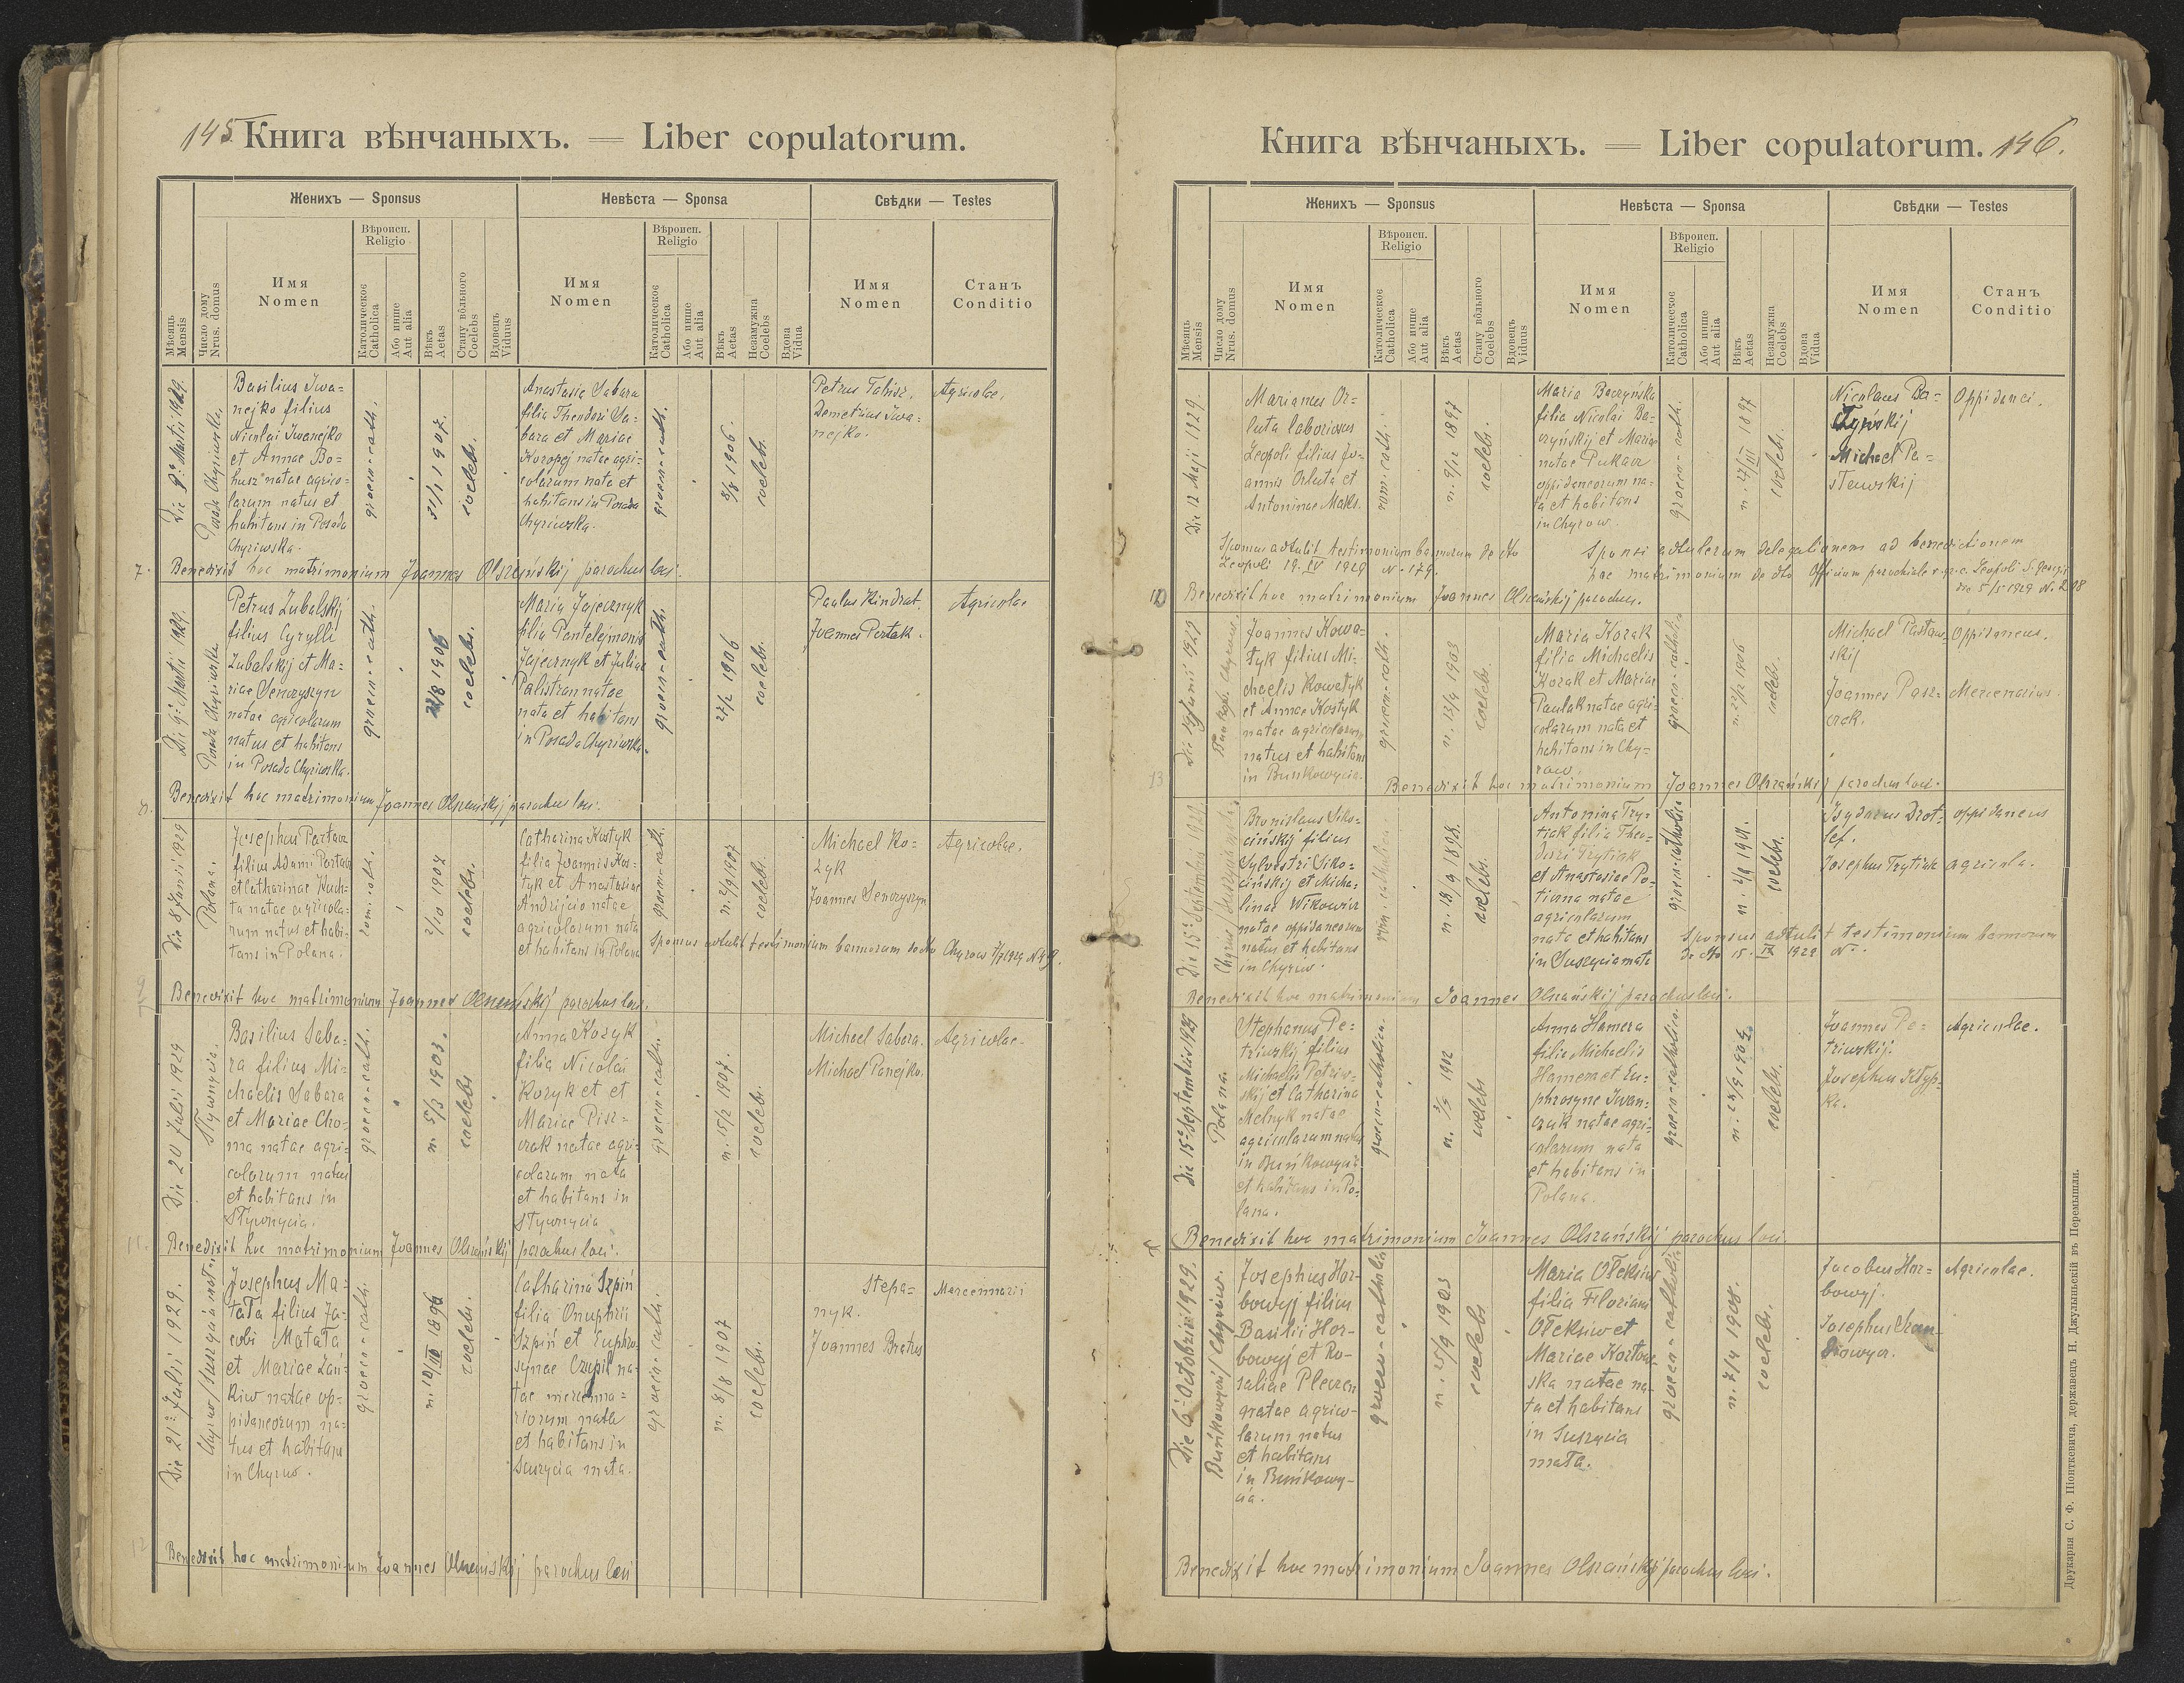 145 Книга вѣнчаныхъ. = Liber copulatorum.
Женихъ — Sponsus
Невѣста — Sponsa
Свѣдки — Testes
Мѣсяць
Mensis
Число дому
Nrus. domus
Имя
Nomen
Вѣроисп.
Religio
Католическое
Catholica
Або инше
Aut alia
Вѣкъ
Aetas
Стану вôльного
Coelebs
Вдовецъ
Viduus
Имя
Nomen
Вѣроисп.
Religio
Католическое
Catholica
Або инше
Aut alia
Вѣкъ
Aetas
Незамужна
Coelebs
Вдова
Vidua
Имя
Nomen
Станъ
Conditio
Posada Chyriwska.
Basilius Iwa=
nejko filius
Nicolai Iwanejko
et Annae Bo=
husz natae agrico=
larum natus et
habitans in Posada
Chyriwska.
groeco-cath.
31/1 1907.
coelebs.
Anastasia Sabara
filia Theodori Sa=
bara et Mariae
Koropej natae agri=
colarum nata et
habitans in Posada
Chyriwska.
groeco-cath.
8/8 1906.
coelebs.
Petrus Tabisz.
Demetrius Iwa=
nejko.
Agricolae.
7. Benedixit hoc matrimonium Joannes Olszański parochus loci.
Posada Chyriwska
Petrus Zubalskij
filius Cyrylli
Zubalskij et Ma=
riae Senczyszyn
natae agricolarum
natus et habitans
in Posada Chyriwska.
groeco-cath.
1906
coelebs.
Maria Jajecznyk
filia Pantelejmonis
Jajecznyk et Juliae
Palistran natae
nata et habitans
in Posada Chyriwska.
groeco-cath.
27/2 1906
coelebs.
Paulus Kindrat.
Joannes Portak.
Agricolae
8. Benedixit hoc matrimonium Joannes Olszańskij parochus loci.
Die 8 Junii 1929
Polana.
Josephus
filius Adami
et Catharinae Kuch=
ta natae agricola=
rum natus et habi=
tans in Polana.
rom.-cath.
2/10 1907
coelebs.
Catharina Kostyk
filia Joannis Kos=
tyk et Anastasiae
Andrijcio natae
agricolarum nata
et habitans in Polana
groeco-cath.
n. 2/9 1907
coelebs.
Michael Ko=
zyk
Joannes Senczyszyn
Agricolae.
Sponsus adtulit testimonium bannorum de dto Chyrow
9 Benedixit hoc matrimonium Joannes Olszańskij parochus loci.
Die 20 Julii 1929
Stywnycia.
Basilius Saba=
ra filius Mi=
chaelis Sabara
et Mariae Cho=
ma natae agri=
colarum natus
et habitans in
Stywnycia.
groeco-cath.
n. 5/3 1903.
coelebs
Anna Kozyk
filia Nicolai
Kozyk et et
Mariae Pisz=
czak natae agri=
colarum nata
et habitans in
Stywnycia
groeco-cath.
n. 15/2 1907.
coelebs.
Michael Sabara.
Michael Panejko.
Agricolae.
11. Benedixit hoc matrimonium Joannes Olszańskij parochus loci.
Die 21º Julii 1929.
Josephus Ma=
tała filius Ja=
cobi Matała
et Mariae Zań=
kiw natae op=
pidaneorum na=
tus et habitans
in Chyrow.
groeco-cath.
n. 10/III 1896
coelebs.
Catharina Szpiń
filia Onuphrii
Szpiń et Euphro=
synae Czupil na=
tae mercenna=
riorum nata
et habitans in
Suszycia mała.
groeco-cath.
n. 8/8 1907
coelebs.
Stepa=
nyk.
Joannes Bratus
Mercennarii
12 Benedixit hoc matrimonium Joannes Olszańskij parochus loci
Книга вѣнчаныхъ. = Liber copulatorum. 146.
Женихъ — Sponsus
Невѣста — Sponsa
Свѣдки — Testes
Мѣсяць
Mensis
Число дому
Nrus. domus
Имя
Nomen
Вѣроисп.
Religio
Католическое
Catholica
Або инше
Aut alia
Вѣкъ
Aetas
Стану вôльного
Coelebs
Вдовецъ
Viduus
Имя
Nomen
Вѣроисп.
Religio
Католическое
Catholica
Або инше
Aut alia
Вѣкъ
Aetas
Незамужна
Coelebs
Вдова
Vidua
Имя
Nomen
Станъ
Conditio
Die 12 Maji 1929.
Marianus Or=
luta laboriosus
Leopoli filius Jo=
annis Orluta et
Antoninae Maks.
rom.-cath.
n. 9/12 1897
coelebs.
Maria Baczyńska
filia Nicolai Ba=
czyńskij et Mariae
natae Pukacz
oppidaneorum na=
ta et habitans
in Chyrow.
groeco-cath.
n. 27/III 1897
coelebs.
Nicolaus Ba=
czyńskij
Michael Pa=
stewskij
Oppidanei.
Sponsus adtulit testimonium bannorum de dto
Leopoli 19. IV 1929 N. 179.
Sponsi adtulerunt delegationem ad benedictionem
hac matrimonium de dto Officium parochiale r.gr.c. Leopoli S. Georgii
die 5/5 1929 N.
10 Benedixit hoc matrimonium Joannes Olszańskij parochus.
Die 19 Junii 1929
Joannes Kowa=
łyk filius Mi=
chaelis Kowałyk
et Annae Kostyk
natae agricolarum
natus et habitans
in Buńkowycia.
groeco-cath.
n. 13/9 1903
coelebs.
Maria Kozak
filia Michaelis
Kozak et Mariae
Paulak natae agri=
colarum nata et
habitans in Chy=
row.
groeco-catholica
1906
coelebs.
Michael Pastaw=
skij
Joannes Pasz=
czak.
Oppidaneus.
Mercenarius.
13 Benedixit hoc matrimonium Joannes Olszańskij parochus loci.
Die 15º Septembris 1929
Bronislaus Siko=
cińskij filius
Sylvestri Siko=
cińskij et Micha=
linae Wikowicz
natae oppidaneorum
natus et habitans
in Chyrow.
rom.-catholica
n. 18/9 1898.
coelebs.
Antonina Try=
tiak filia Theo=
dori Trytiak
et Anastasiae Po=
tiuna natae
agricolarum
nata et habitans
in Suszycia mała
groeco-catholica
1911.
coelebs.
Isydorus Drot=
lef.
Josephus Trytiak
oppidaneus
agricola.
Sponsus adtulit testimonium bannorum
de dto 15. IX 1929 N.
Benedixit hoc matrimonium Joannes Olszańskij parochus loci.
Die 15º Septembris 1929
Polana.
Stephanus Pe=
triwskij filius
Michaelis Petriw=
skij et Catharina
Melnyk natae
agricolarum natus
in Buńkowycia
et habitans in Po=
lana.
groeco-catholica.
1902
coelebs
Anna Hamera
filia Michaelis
Hamera et Eu=
phrosyne Iwan=
czak natae agri=
colarum nata
et habitans in
Polana.
groeco-catholica.
coelebs.
Joannes Pe=
triwskij.
Josephus Kłyp=
ka.
Agricolae.
Benedixit hoc matrimonium Joannes Olszańskij parochus loci.
Die 6º Octobris 1929.
Buńkowycia/Chyriw.
Josephus Hor=
bowyj filius
Basilii Hor=
bowyj et Ro=
saliae Plecen
gratae agrico=
larum natus
et habitans
in Buńkowy=
cia.
groeco-catholica
n. 25/9 1903
coelebs
Maria Ołeksiw
filia Floriani
Ołeksiw et
Mariae Kortow=
ska natae na=
ta et habitans
in Suszycia
mała.
groeco-catholica
n. 7/4 1908.
coelebs.
Jacobus Hor=
bowyj.
Agricolae.
Benedixit hoc matrimonium Joannes Olszańskij parochus loci.
Друкарня С. Ф. Піонткевича, державецъ Н. Джулыньскій въ Перемышли.